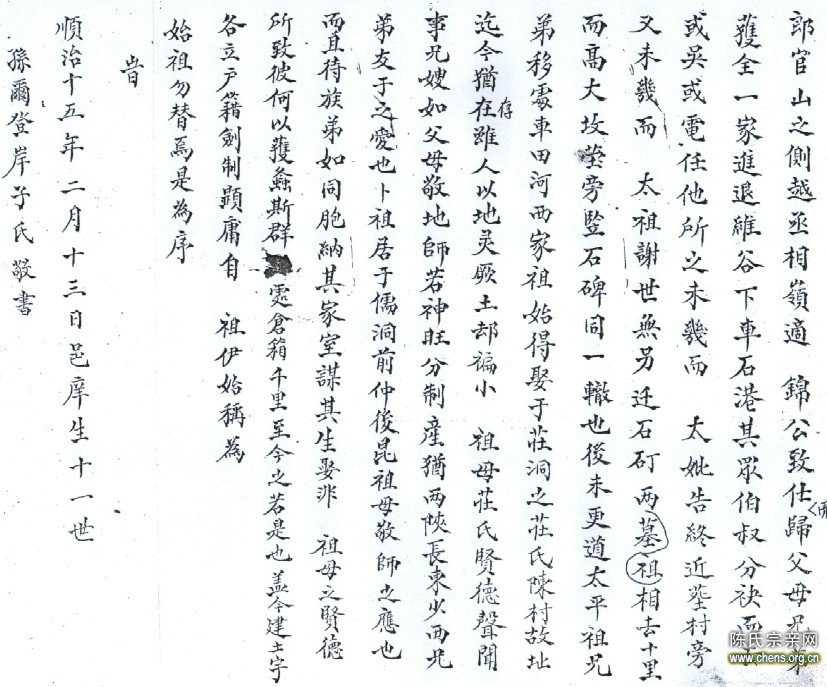 郎官山之側越丞相嶺適 錦公致仕歸父母兄弟
獲全一家進退維谷下車石港其眾伯叔分袂而
或吳或電任他所之未幾而 太妣告終近塋村旁
又未幾而 太祖謝世無另迁石矴兩墓祖相去十里
而高大坟塋旁竪石碑同一轍也後未更道太平祖兄
弟移處車田河西家祖始得娶于莊洞之莊氏陳村故址
迄今猶在存雖人以地灵厥土却褊小 祖母莊氏賢德聲聞
事兄嫂如父母敬地師若神旺分制產猶两陝長東少西兄
弟友于之愛也卜祖居于儒洞前仲後昆祖母敬師之應也
而且待族弟如同胞納其家室謀其生娶非 祖母之賢德
所致彼何以獲螽斯群 處倉箱千里至今之若是也盖今建土宇
各立户籍創制顕庸自 祖伊始稱為
始祖勿替焉是為序
旹
順治十五年二月十三日邑庠生十一世
孫爾登岸子氏敬書
陈氏宗亲网
www.chens.org.cn